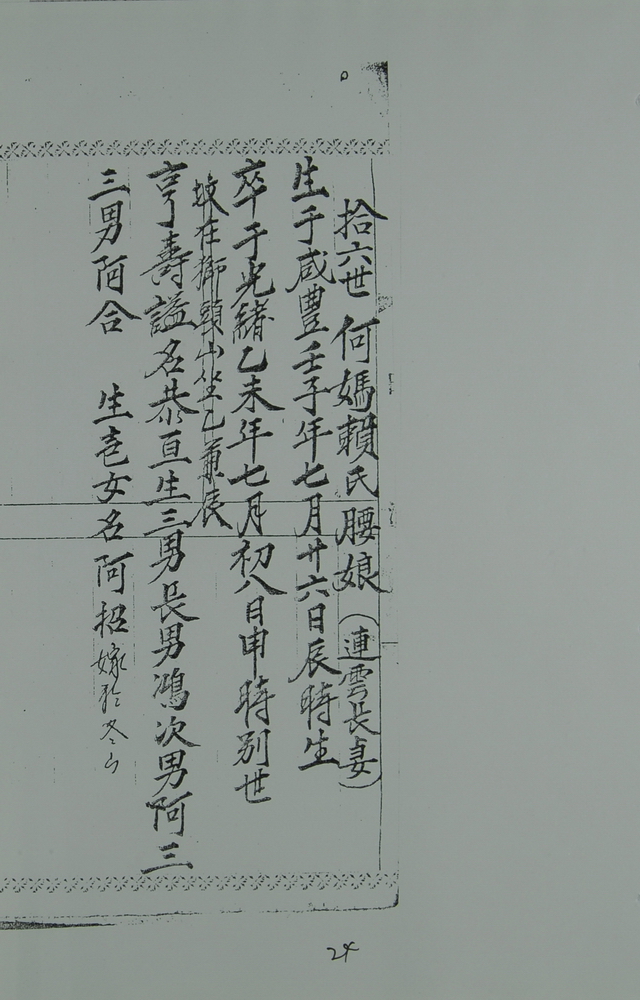 拾六世 何媽賴氏腰娘(連雲長妻)
生于咸豐壬子年七月廿六日辰時生
卒于光緒乙未年七月初八日申時別世
坟在獅頭山坐乙兼辰
亨壽謚名恭亘生三男長男鴻次男阿三
三男阿合 生壱女名阿招嫁於冬山
24